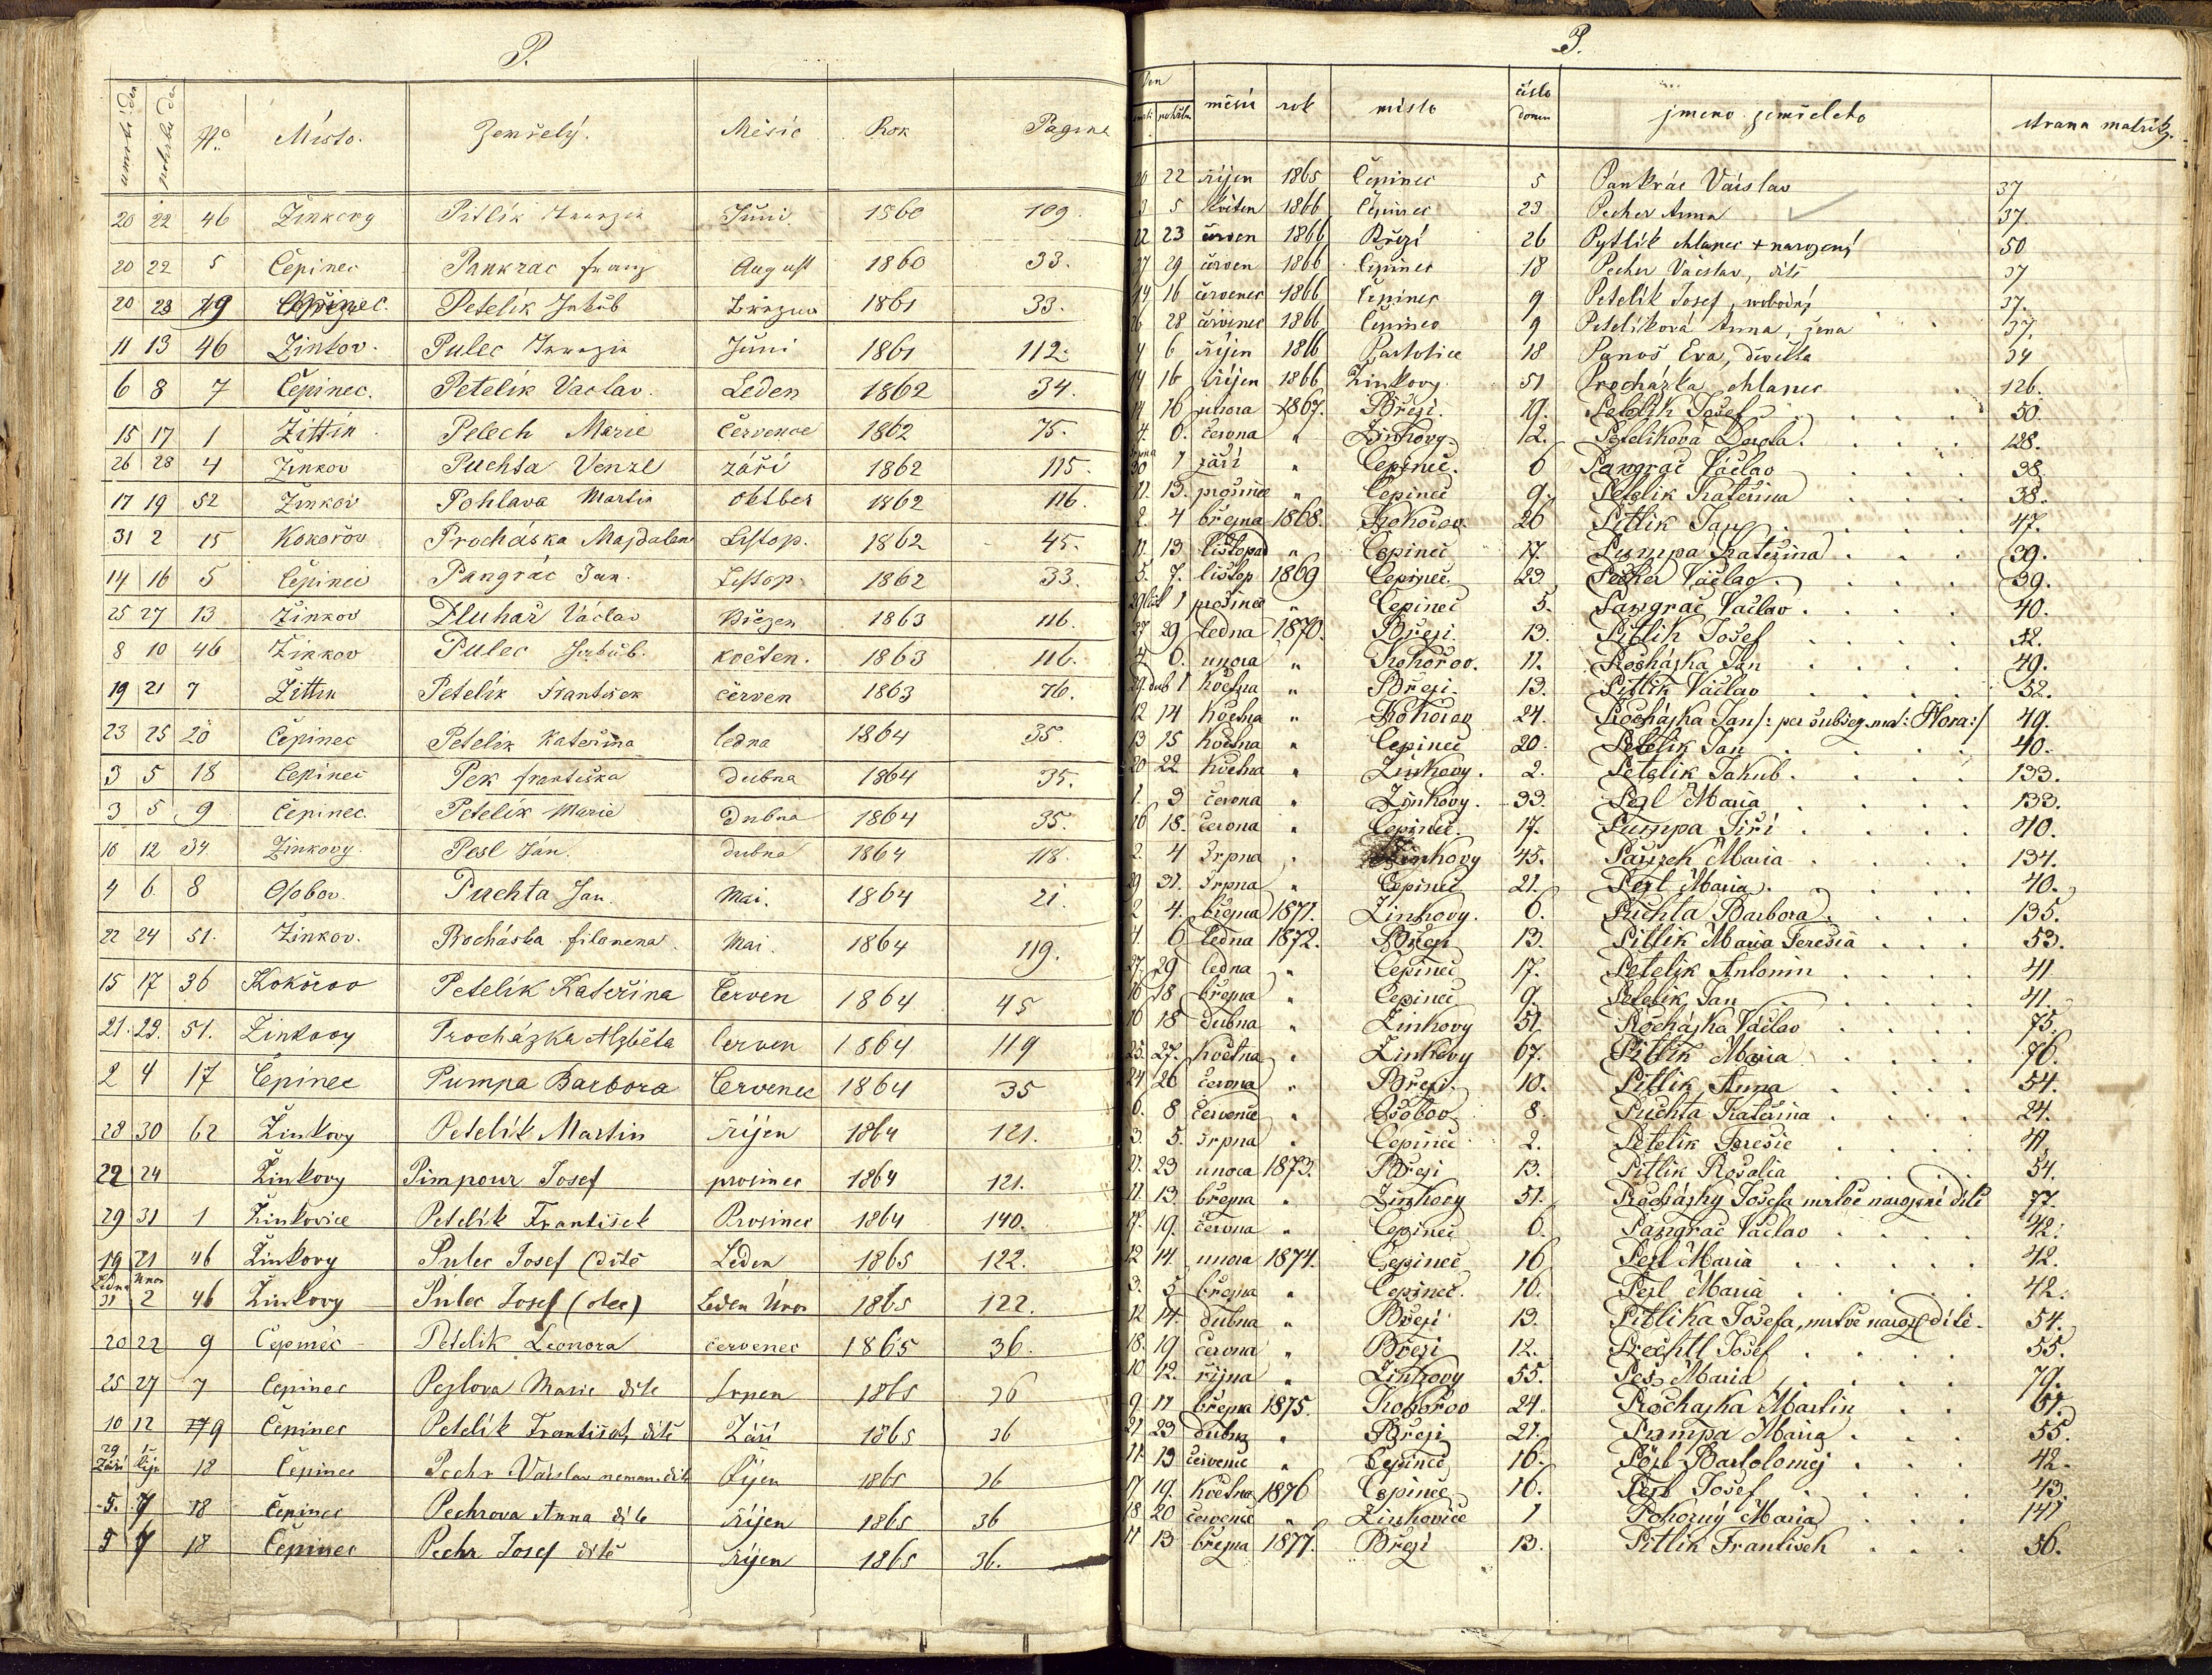 P.
umrtí den pohřbu den No. Místo. Zemřelý. Měsíc Rok Pagina
20 22 46 Žinkovy Pitlík Juni 1860 109.
20 22 5 Čepinec Pankrac franz August 1860 33.
20 23 19 Čepinec. Petelík Jakub Března 1861 33.
11 13 46 Žinkov. Pulec Juni 1861 112.
6 8 7 Čepinec. Petelík Vaclav. Leden 1862 34.
15 17 1 Žittín Pelech Marie července 1862 75.
26 28 4 Žinkov Puchta Venzl září 1862 115.
17 19 52 Žinkov Pohlava Martin oktber 1862 116.
31 2 15 Kokořov Procháska Majdalen Listop. 1862 45.
14 16 5 Čepinec Pangrác Jan. Listop. 1862 33.
25 27 13 Žinkov Pluhař Václav Březen 1863 116.
8 10 46 Žinkov Pulec Jakub. květen. 1863 116.
19 21 7 Žittin Petelík František červen 1863 76.
23 25 20 Čepinec Petelík Kateřina ledna 1864 35.
3 5 18 Čepinec Pek františka dubna 1864 35.
3 5 9 Čepinec. Petelík Marie Dubna 1864 35.
10 12 34 Žinkovy. Pesl Ján. dubna 1864 118.
4 6 8 Osobov. Puchta Jan. Mai. 1864 21.
22 24 51. Žinkov. Procháska filomena. Mai. 1864 119.
15 17 36 Kokořov Petelík Kateřina Červen 1864 45
21. 23. 51. Žinkovy Procházka Alzběta červen 1864 119
2 4 17 Čepinec Pumpa Barbora Červenec 1864 35
28 30 62 Žinkovy Petelík Martin říjen 1864 121.
22 24 Žinkovy Pimpour Josef prosinec 1864 121.
29 31 1 Žinkovice Petelík František Prosinec 1864 140.
19 21 46 Žinkovy Pulec Josef (dítě Leden 1865 122.
Ledna Února
31 2 46 Žinkovy Pulec Josef (otec) Leden Únor 1865 122.
20 22 9 Čepinec Petelik Leonora červenec 1865 36.
25 27 7 Čepinec Pezlova Marie dite Srpen 1865 36
10 12 9 Čepinec Petelík František dítě Září 1865 36
29 Září 1 říj 18 Čepinec Pechr Václav dítě Říjen 1865 36
5. 7 18 Čepinec Pechrova Anna díte říjen 1865 36
5 7 18 Čepinec Pechr Josef dítě říjen 1865 36.
P.
Den
umrtí pohřbu měsíc rok místo číslo domu jmeno zemřeleho strana matriky.
20 22 říjen 1865 Čepinec 5 Pankrác Václav 37
3 5 květen 1866 Čepinec 23 Pecher Anna 37
22 23 červen 1866 Březí 26 Pytlík chlapec + narozený 50
27 29 červen 1866 Čepinec 18 Pecher Václav, dítě 37
14 16 červenec 1866 Čepinec 9 Petelík Josef, svobodný 37.
26 28 červenec 1866 Čepinec 9 Petelíková Anna, žena 37.
4 6 říjen 1866 Partoltice 18 Panoš Eva, děvečka 34
14 16 říjen 1866 Žinkovy 51 Procházka chlapec 126.
14 16 unora 1867. Březi. 19. Petelik Josef 50.
4. 6. června " Žinkovy. 12. Petelikova Dorota. 128.
srpna
30 1 září " Čepineč. 6 Pangrač Václav 38.
11. 13. prosince " Čepineč 9. Petelik Kateřina 38.
2. 4 března 1868. Kokořov 26 Pitlik Jan 47.
11. 13 listopad " Čepineč 17. Pumpa Kateřina 39.
5. 7. listop 1869 Čepineč. 23 Pecher Václav. 39.
29 list 1 prosince " Čepineč 5. Pangrač Václav. 40.
27 29 ledna 1870. Březi. 13. Pitlik Josef 52.
4. 6. unora " Kokořov. 11. Prochazka Jan 49.
29. dub 1 května " Březi. 13. Pitlik Václav 52.
12 14 května " Kokořov 24. Prochazka Jan /: per subseq. mat: Flora:/ 49.
13 15 května " Čepineč 20. Petelik Jan 40.
20 22 května " Žinkovy. 2. Petelik Jakub. 133.
1. 3 června " Žinkovy. 33. Pezl Maria 133.
16 18. června " Čepineč. 17. Pumpa Jiří 40.
2. 4 srpna " Žinkovy 45. Maria 134.
29 31. srpna " Čepineč 21. Pezl Maria. 40.
2 4. března 1871. Žinkovy. 6. Puchta Barbora. 135.
4. 6 ledna 1872. Březi 13. Pitlik Maria Teresia 53.
27. 29 ledna " Čepineč 17. Petelik Antonin 41.
16 18 března " Čepineč 9. Petelik Jan 41.
16 18 dubna " Žinkovy 51 Prochazka Václav 75.
25. 27. května " Žinkovy 67. Pitlik Maria 76.
24 26 června " Březi. 10. Pitlik Anna 54.
6. 8 července " Osobov 8. Puchta Kateřina 24.
3. 5. srpna " Čepineč 2. Petelik Teresie 41.
21. 23 unora 1873. Březi 13. Pitlik Rosalia 54.
11. 13 března " Žinkovy 51. Prochazky Josefa mrtvě narozené dítě 77.
17. 19. června " Čepineč 6. Pangrač Václav 42.
12 14. unora 1874. Čepineč 16 Pezl Maria 42.
3. 5 března " Čepineč. 16. Pezl Maria 42.
12 14. dubna " Březi 13. Pitlika Josefa, mrtvě naroz. dítě. 54.
18. 19 června " Březi 12. Prechtl Josef 55.
10 12. října " Žinkovy 55. Pes Maria 79.
9. 11 března 1875. Kokořov 24. Prochazka Martin 51.
21 23 dubna " Březi 21. Pumpa Maria 55.
11. 13 července " Čepineč 16. Pözl Bartolomej 42.
17 19. května 1876 Čepineč 16. Pezl Josef 43.
18 20 července " Žinkovice 1 Pokorný Maria 141.
11 13 března 1877. Březi 13. Pitlik František 56.